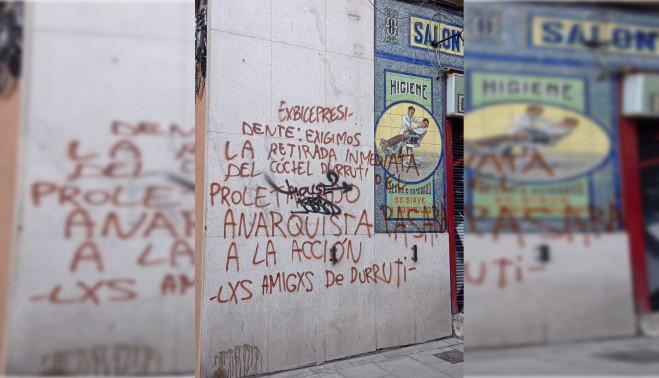 SALON
HIGIENE
EXBICEPRESI-
DENTE: EXIGIMOS
LA RETIRADA INMEDIATA
DEL CÓCTEL DURRUTI O EL
PROLETARIADO
ANARQUISTA PASARA
A LA ACCIÓN
-LXS AMIGXS DE DURRUTI-
SE SIRVE
A DOMICILIO